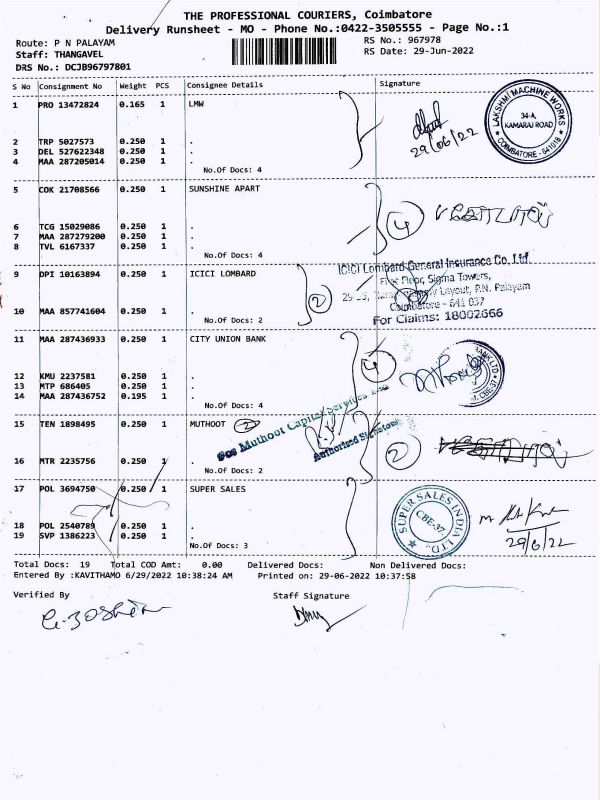 THE PROFESSIONAL COURIERS, Coimbatore
Delivery Runsheet - MO - Phone No.:0422-3505555 - Page No.:1
Route: P N PALAYAM
Staff: THANGAVEL
DRS No.: DCJB96797801
RS No.: 967978
RS Date: 29-Jun-2022
S No Consignment No Weight PCS Consignee Details Signature
1 PRO 13472824 0.165 1 LMW
LAKSHMI MACHINE WORKS
34-A,
KAMARAJ ROAD
COIMBATORE - 641018
29/06/22
2 TRP 5027573 0.250 1 .
3 DEL 527622348 0.250 1 .
4 MAA 287205014 0.250 1 .
No.Of Docs: 4
5 COK 21708566 0.250 1 SUNSHINE APART
4
6 TCG 15029086 0.250 1 .
7 MAA 287279200 0.250 1 .
8 TVL 6167337 0.250 1 .
No.Of Docs: 4
9 DPI 10163894 0.250 1 ICICI LOMBARD
ICICI Lombard General Insurance Co. Ltd.
Floor, Sigma Towers,
Layout, P.N. Palayam
Coimbatore - 641 037
For Claims: 18002666
2
10 MAA 857741604 0.250 1 .
No.Of Docs: 2
11 MAA 287436933 0.250 1 CITY UNION BANK
4
BANK LTD
CBE-37
12 KMU 2237581 0.250 1 .
13 MTP 686405 0.250 1 .
14 MAA 287436752 0.195 1 .
No.Of Docs: 4
15 TEN 1898495 0.250 1 MUTHOOT 2
For Muthoot Capital Services Ltd
Authorised Signatory
2
16 MTR 2235756 0.250 1 .
No.Of Docs: 2
17 POL 3694750 0.250 1 SUPER SALES
SUPER SALES INDIA LTD.
CBE-37.
29/6/22
18 POL 2540789 0.250 1 .
19 SVP 1386223 0.250 1 .
No.Of Docs: 3
Total Docs: 19 Total COD Amt: 0.00 Delivered Docs: Non Delivered Docs:
Entered By :KAVITHAMO 6/29/2022 10:38:24 AM Printed on: 29-06-2022 10:37:58
Verified By Staff Signature